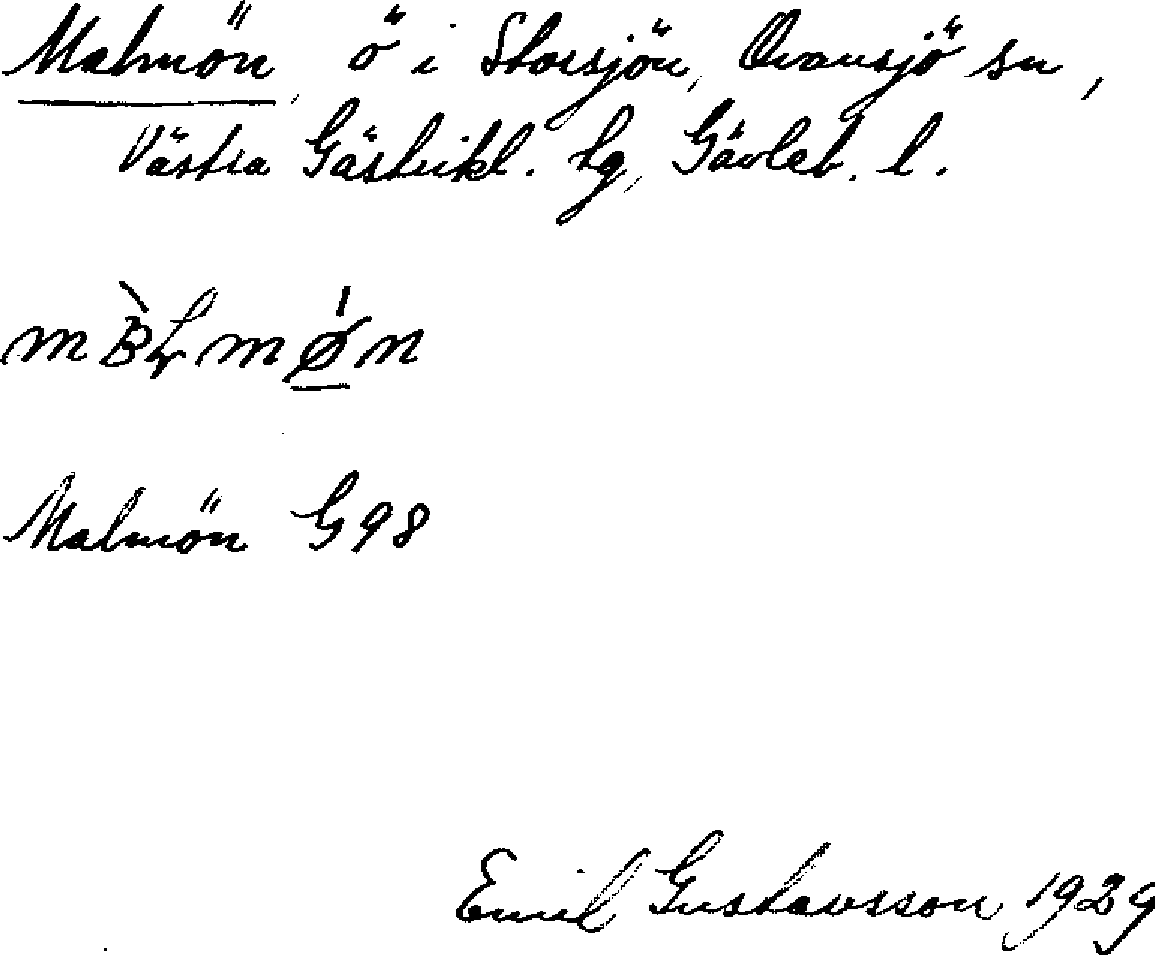 Malmön, ö i Storsjön, Ovansjö sn,
Västra Gästrikl. tg, Gävleb. l.
Malmön G 98
Emil Gustavsson 1929